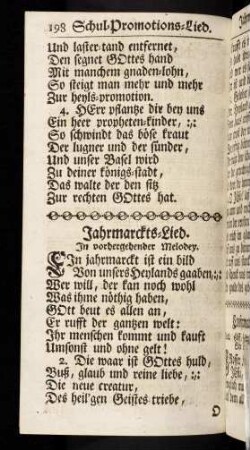 198 Schul-Promotions-Lied.
Und laster-tand entfernet,
Den segnet GOttes hand
Mit manchem gnaden-lohn,
So steigt man mehr und mehr
Zur heyls-promotion.
4. HErr pflantze dir bey uns
Ein heer propheten-kinder, :,:
So schwindt das böse kraut
Der lugner und der sünder,
Und unser Basel wird
Zu deiner königs-stadt,
Das walte der den sitz
Zur rechten GOttes hat.
Jahrmarckts-Lied.
In vorhergehender Melodey.
EIn jahrmarckt ist ein bild
Von unsers Heylands gaaben; :,:
Wer will, der kan noch wohl
Was ihme nöthig haben,
GOtt beut es allen an,
Er rufft der gantzen welt:
Ihr menschen kommt und kauft
Umsonst und ohne gelt!
2. Die waar ist GOttes huld,
Buß, glaub und reine liebe, :,:
Die neue creatur,
Des heil'gen Geistes triebe,
O